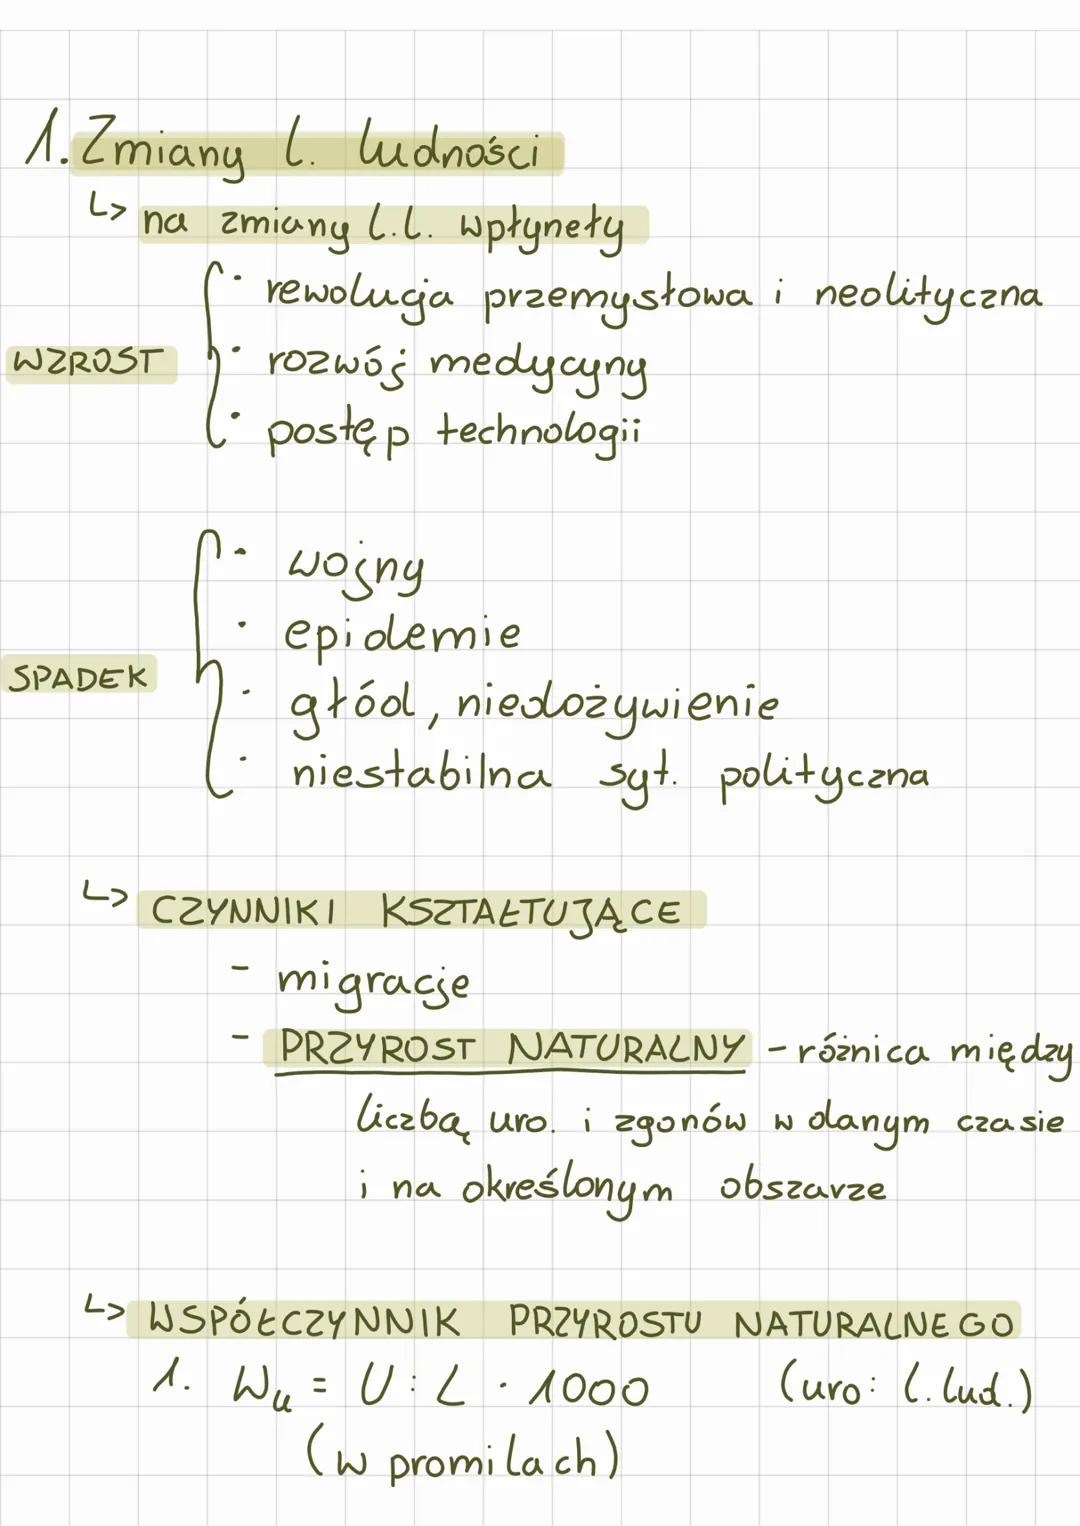 1. Zmiany l. ludności
↳ na zmiany l.l. wpłynęły
· rewolucja przemysłowa i neolityczna
WZROST · rozwój medycyny
· postęp technologii
· wojny
· epidemie
SPADEK
· głód, niedożywienie
· niestabilna syt. polityczna
↳ CZYNNIKI KSZTAŁTUJĄCE
- migracje
- PRZYROST NATURALNY - różnica między
liczbą uro. i zgonów w danym czasie
i na określonym obszarze
↳ WSPÓŁCZYNNIK PRZYROSTU NATURALNEGO
1. Wu = U : L · 1000 (uro: l. lud.)
(w promilach)